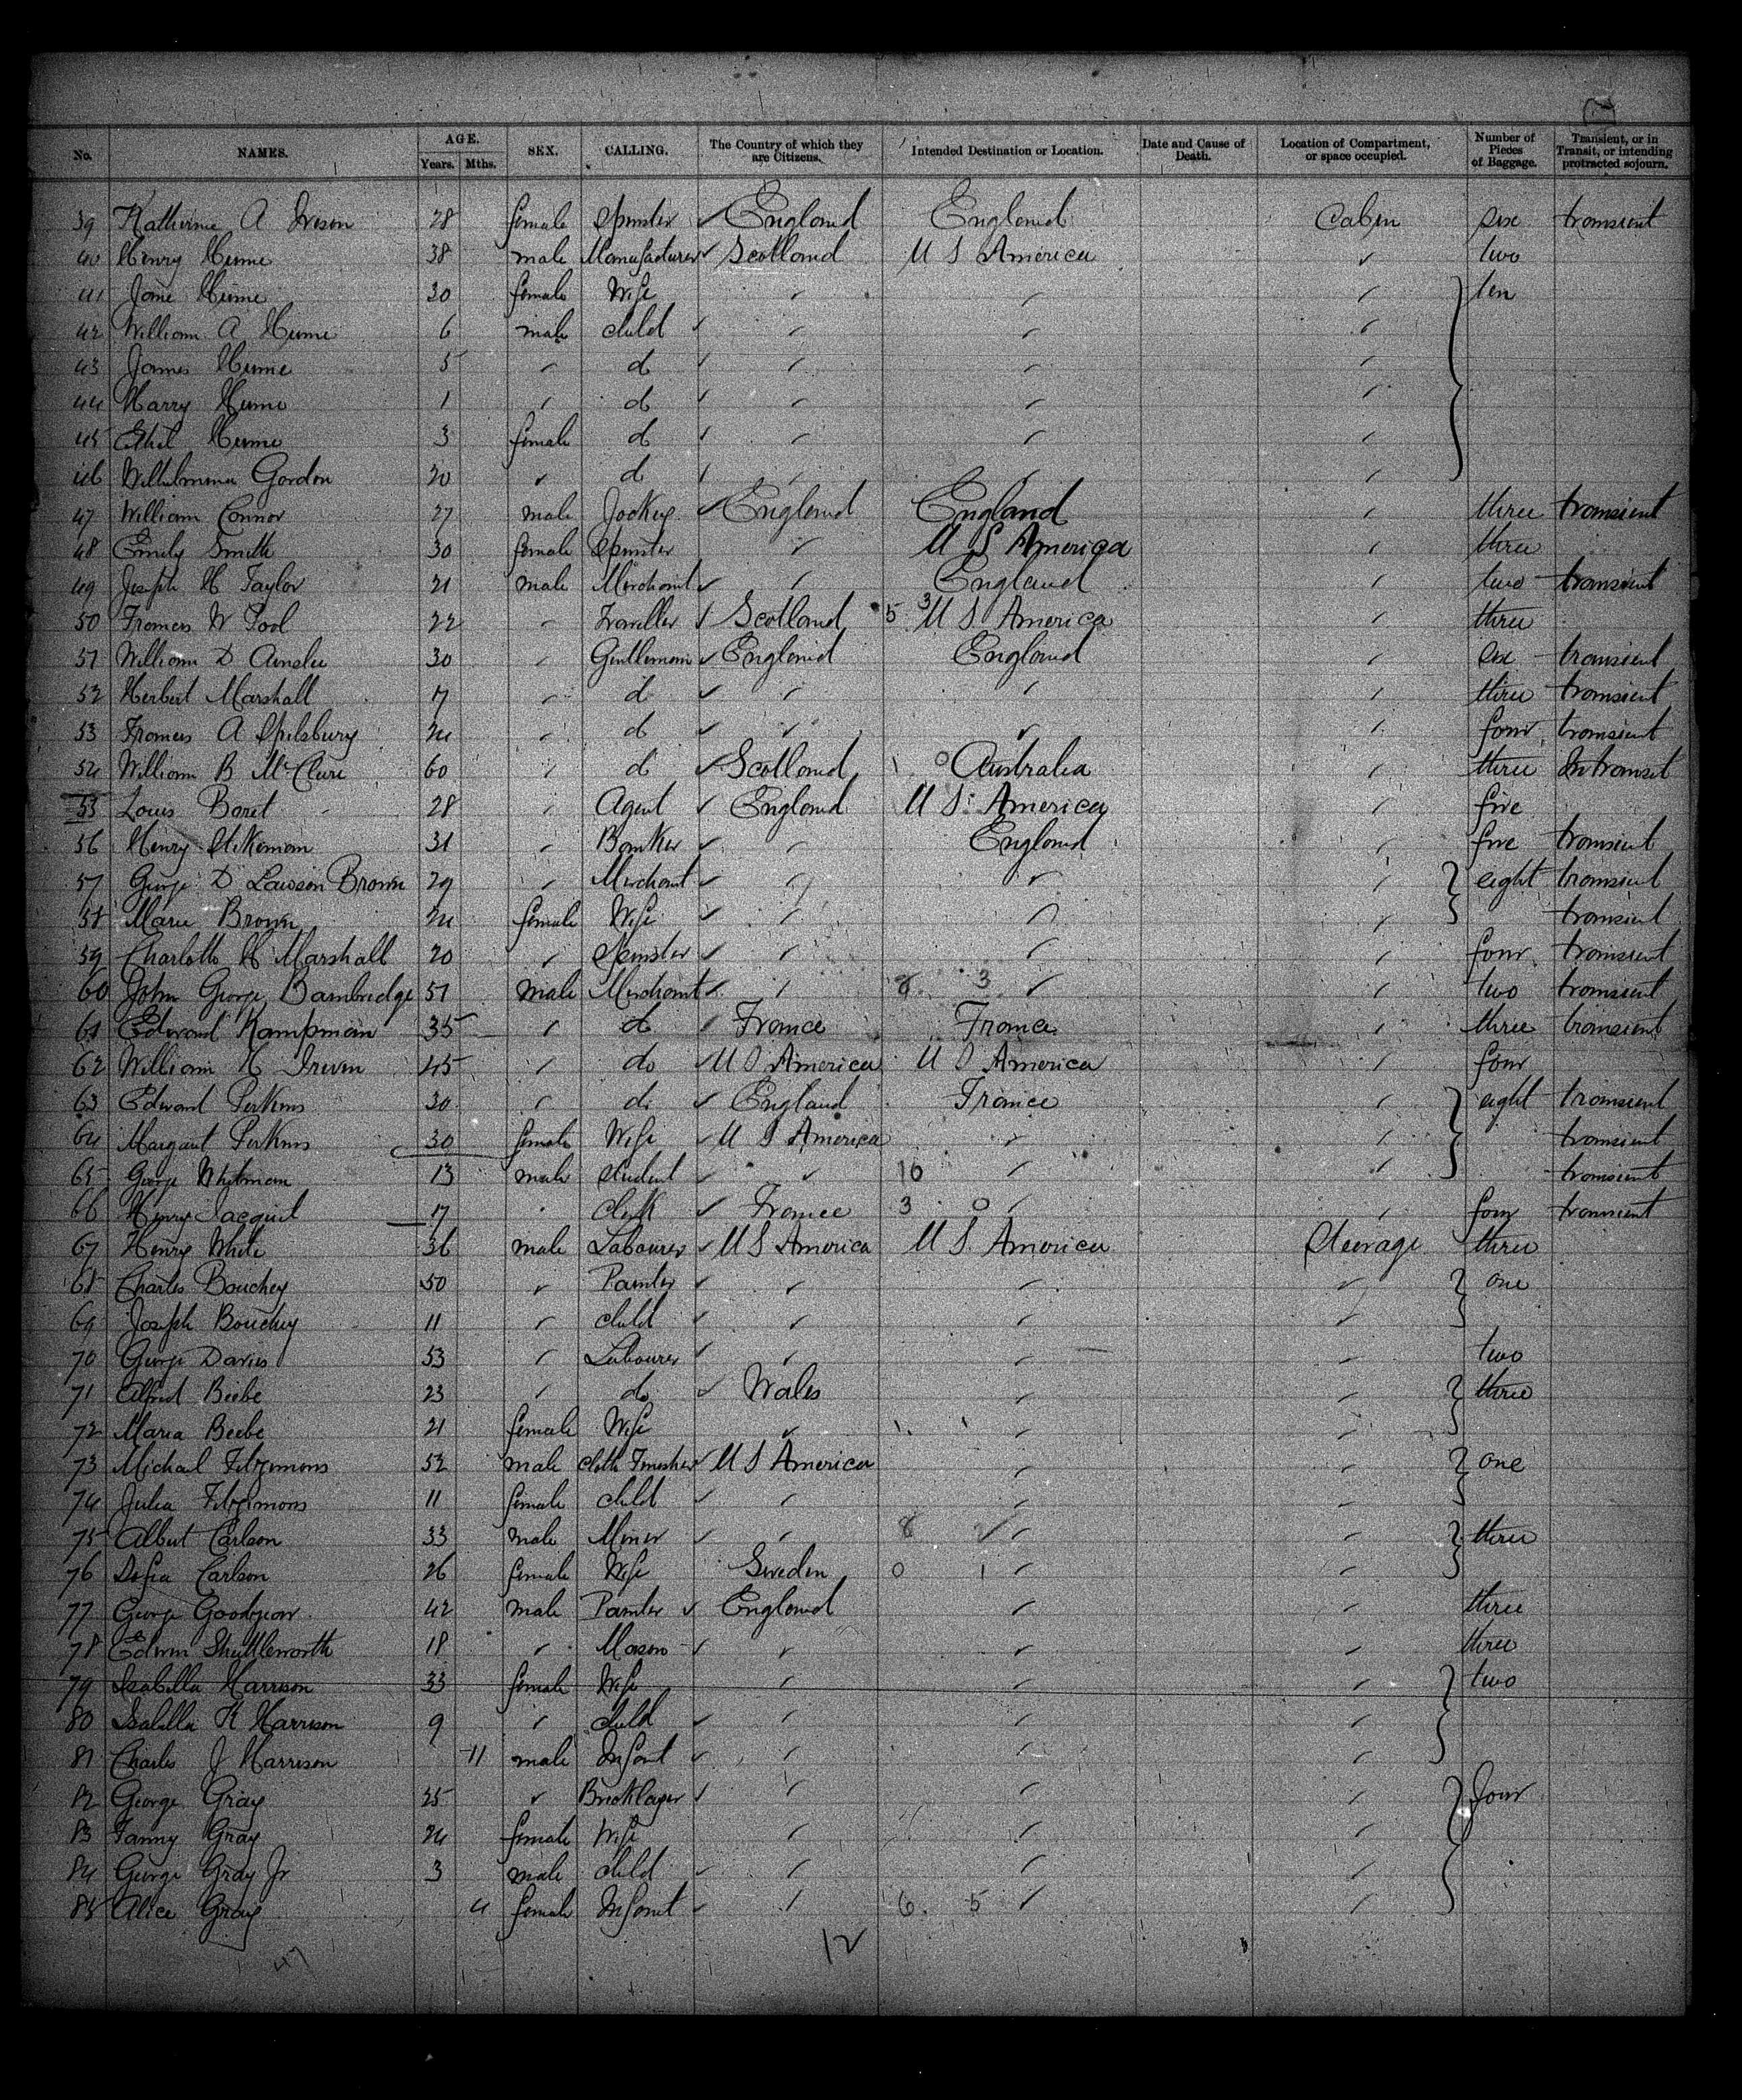 No. NAMES. AGE. Years. Mths. SEX. CALLING. The Country of which they are Citizens. Intended Destination or Location. Date and Cause of Death. Location of Compartment, or space occupied. Number of Pieces of Baggage. Transient, or in Transit, or intending protracted sojourn.
39 Katherine A 28 female Spinster ✓ England England Cabin six transient
40 Henry Hume 38 male Manufacturer ✓ Scotland U S America ✓ two
41 Jane Hume 30 female Wife ✓ ✓ ✓ ten
42 William A Hume 6 male child ✓ ✓ ✓ ✓
43 James Hume 5 ✓ do ✓ ✓ ✓ ✓
44 Harry Hume 1 ✓ do ✓ ✓ ✓ ✓
45 Ethel Hume 3 female do ✓ ✓ ✓ ✓
46 Wilhelmina Gordon 20 ✓ do ✓ ✓ ✓ ✓
47 William Connor 27 male Jockey ✓ England England ✓ three transient
48 Emily Smith 30 female Spinster ✓ U S America ✓ three
49 Joseph H Taylor 21 male Merchant ✓ ✓ England ✓ two transient
50 Frances W Pool 22 ✓ Traveller ✓ Scotland 5 3 U S America ✓ three
51 William D Ainslie 30 ✓ Gentleman ✓ England England ✓ six transient
52 Herbert Marshall 17 ✓ do ✓ ✓ ✓ ✓ three transient
53 Frances A Spilsbury 24 ✓ do ✓ ✓ ✓ ✓ four transient
54 William B McClure 60 ✓ do ✓ Scotland 1 0 Australia ✓ three In transit
55 Louis Baret 28 ✓ Agent ✓ England U S America five
56 Henry Stikeman 31 ✓ Banker ✓ ✓ England ✓ five transient
57 George D Lawson Brown 29 ✓ Merchant ✓ ✓ ✓ ✓ eight transient
58 Marie Brown 24 female Wife ✓ ✓ ✓ ✓ transient
59 Charlotte H Marshall 20 ✓ Spinster ✓ ✓ ✓ ✓ four transient
60 John George Bambridge 51 male Merchant ✓ ✓ 8 3 ✓ ✓ two transient
61 Edward Kampman 35 ✓ do ✓ France France ✓ three transient
62 William H Irwin 45 ✓ do ✓ U S America U S America ✓ four
63 Edward Perkins 30 ✓ do ✓ England France ✓ eight transient
64 Margaret Perkins 30 female Wife ✓ U S America ✓ ✓ transient
65 George Whitman 13 male student ✓ ✓ 10 ✓ ✓ transient
66 Henry Jacquet 17 clerk ✓ France 3 0 ✓ ✓ four transient
67 Henry White 36 male Labourer ✓ U S America U S America Steerage three
68 Charles Bouchey 50 ✓ Painter ✓ ✓ ✓ ✓ one
69 Joseph Bouchey 11 ✓ child ✓ ✓ ✓ ✓
70 George Davies 53 ✓ Labourer ✓ ✓ ✓ ✓ two
71 Alfred Beebe 23 ✓ do ✓ Wales ✓ ✓ three
72 Maria Beebe 21 female Wife ✓ 1 1 ✓ ✓
73 Michael Fitzsimons 52 male Cloth Finisher ✓ U S America ✓ ✓ one
74 Julia Fitzsimons 11 female child ✓ ✓ ✓ ✓
75 Albert Carlson 33 male Miner ✓ ✓ 8 ✓ ✓ three
76 Sofia Carlson 26 female Wife Sweden 0 1 ✓ ✓
77 George Goodyear 42 male Painter ✓ England ✓ ✓ three
78 Edwin Shuttleworth 18 ✓ Mason ✓ ✓ ✓ ✓ three
79 Isabella Harrison 33 female Wife ✓ ✓ ✓ two
80 Isabella K Harrison 9 ✓ child ✓ ✓ ✓ ✓
81 Charles J Harrison 11 male Infant ✓ ✓ ✓ ✓
82 George Gray 25 ✓ Bricklayer ✓ ✓ ✓ ✓ four
83 Fanny Gray 24 female Wife ✓ ✓ ✓
84 George Gray Jr 3 male child ✓ ✓ ✓ ✓
85 Alice Gray 4 female Infant ✓ ✓ 6 5 ✓ ✓
47 12